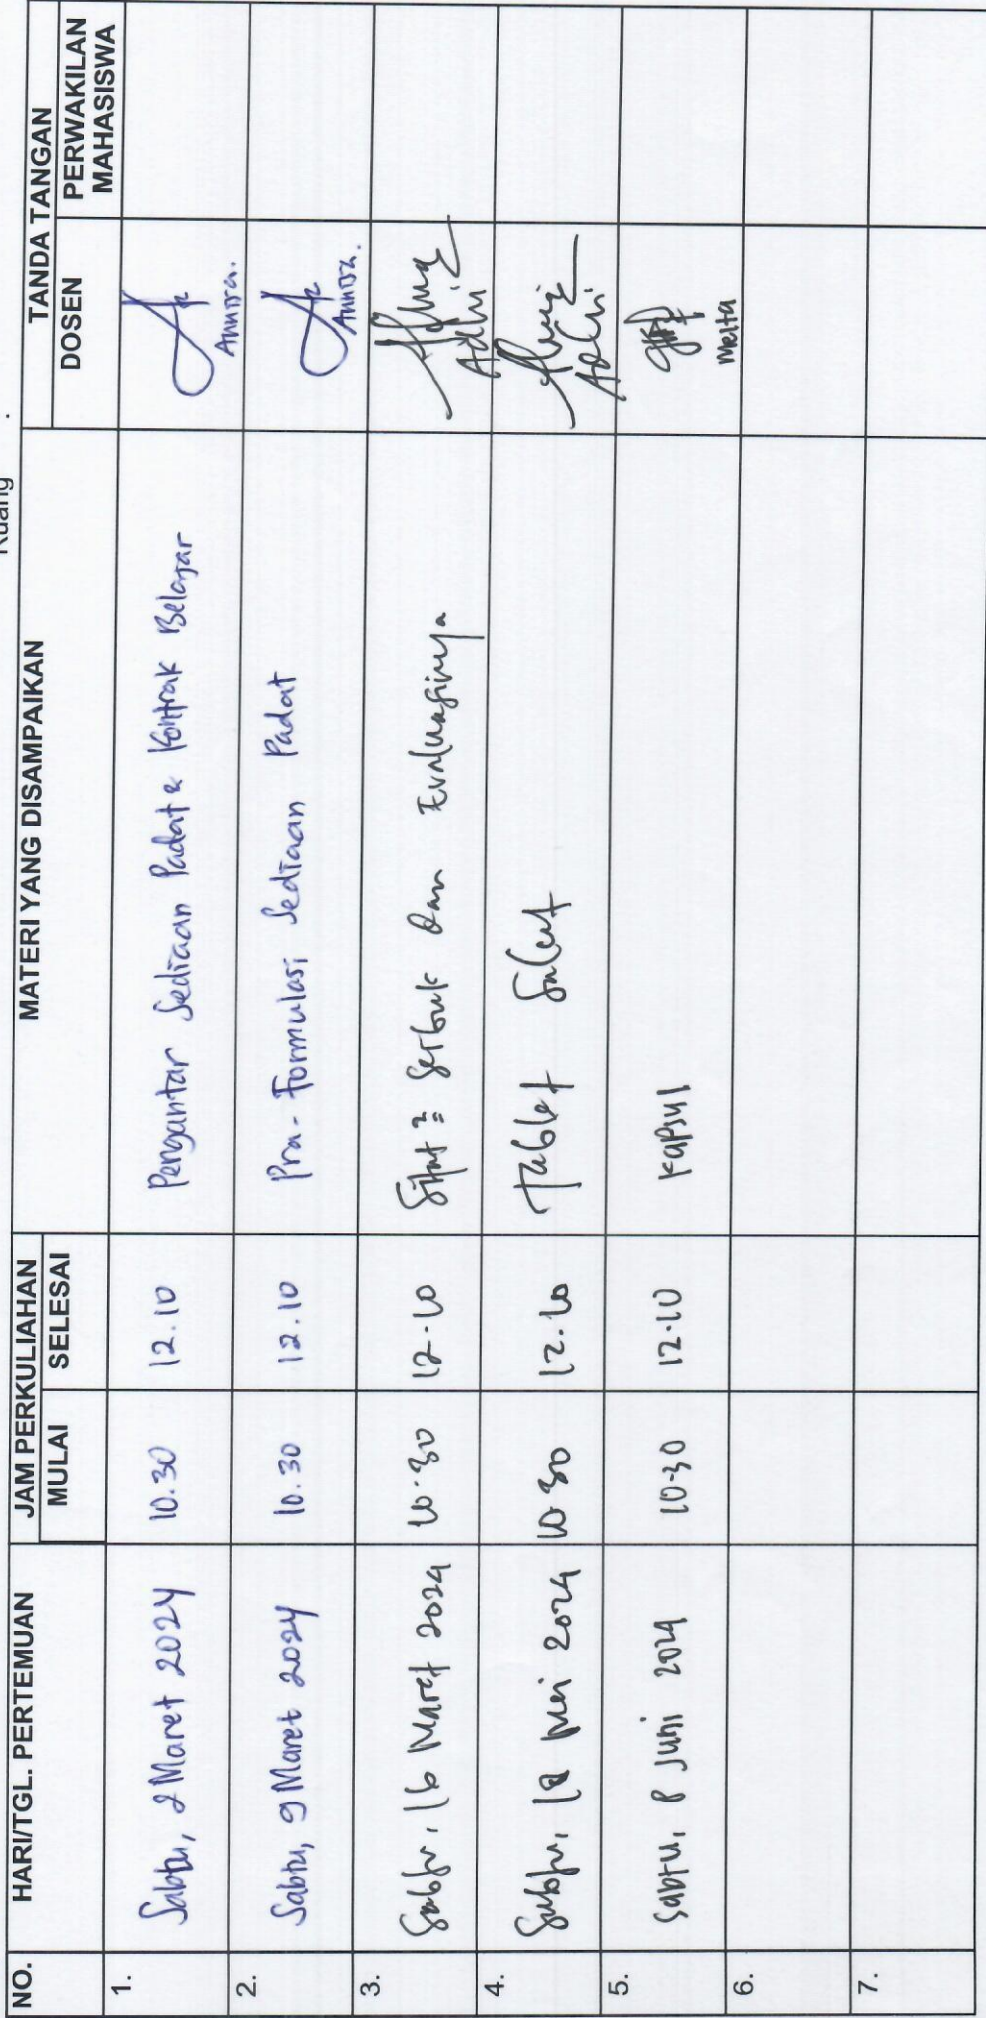 Ruang :
NO. HARI/TGL. PERTEMUAN JAM PERKULIAHAN MATERI YANG DISAMPAIKAN TANDA TANGAN
MULAI SELESAI DOSEN PERWAKILAN MAHASISWA
1. Sabtu, 2 Maret 2024 10.30 12.10 Pengantar Sediaan Padat & Kontrak Belajar Annisa.
2. Sabtu, 9 Maret 2024 10.30 12.10 Pra-Formulasi Sediaan Padat Annisa.
3. Sabtu, 16 Maret 2024 10.30 12.10 Sifat² Serbuk dan Evaluasinya Adhi
4. Sabtu, 18 Mei 2024 10.30 12.10 Tablet Salut Adhi
5. Sabtu, 8 Juni 2024 10-30 12.10 Kapsul Melta
6.
7.